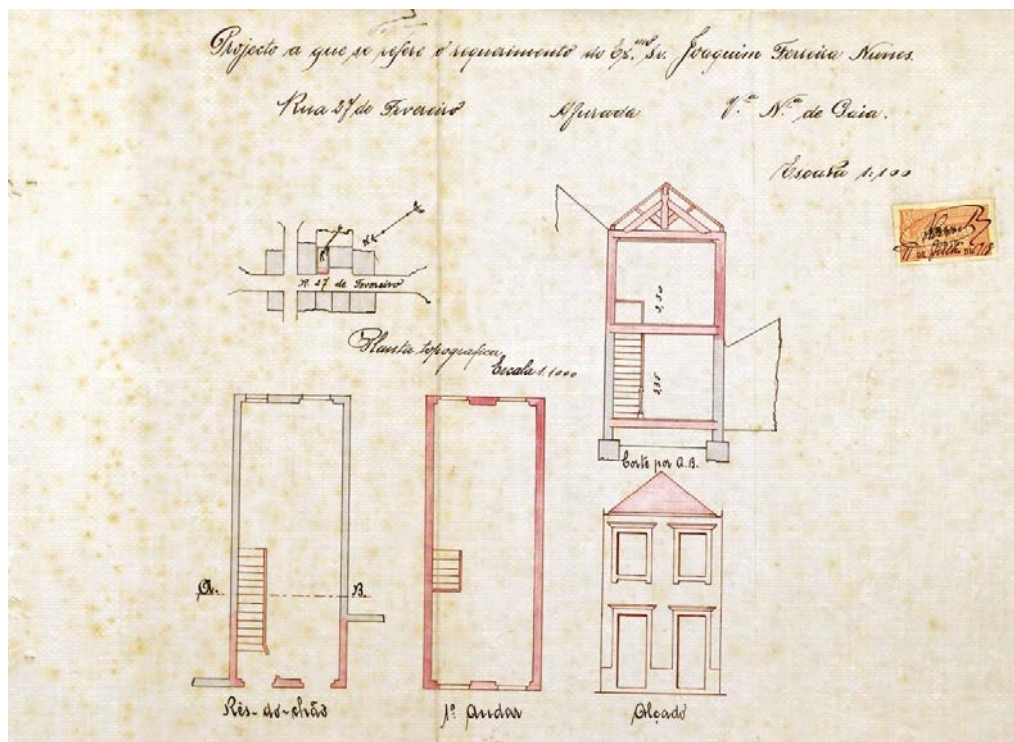 Projecto a que se refere o requerimento do Ex.mo Sr. Joaquim Ferreira Nunes.
Rua 27 de Fevereiro Afurada V.a N.a de Gaia.
Escala 1:100
R. 27 de Fevereiro
Planta topografica
Escala 1:1000
3,50
3,25
Corte por A.B.
A. B.
Rés-do-chão 1º Andar Alçado